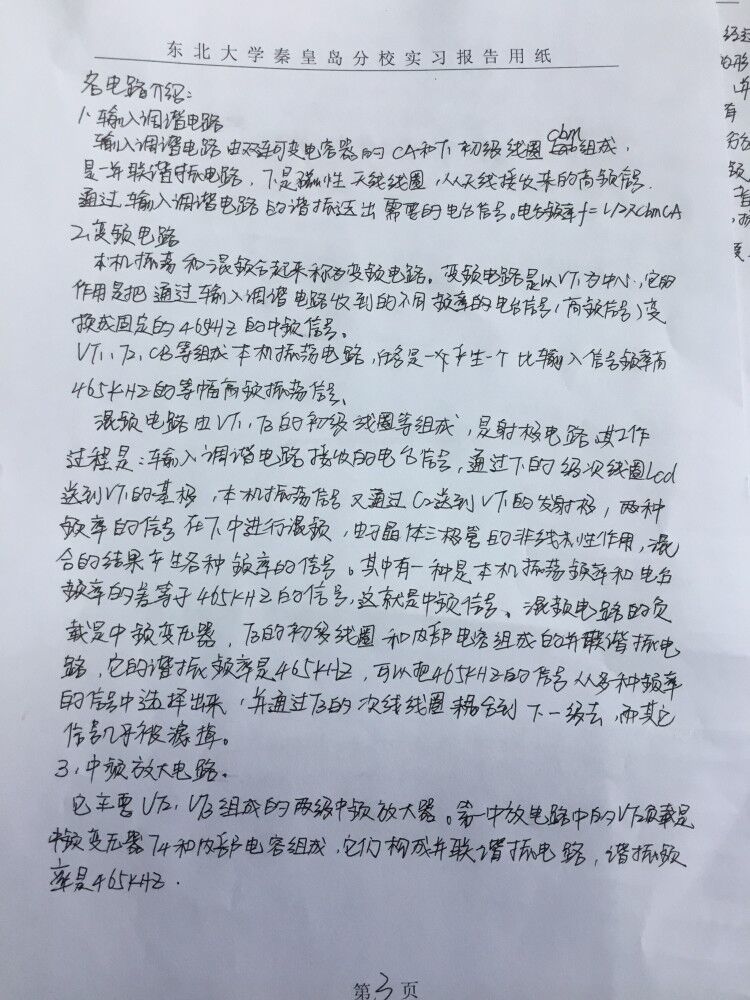 东北大学秦皇岛分校实习报告用纸
各电路介绍:
1、输入调谐电路
输入调谐电路由双连可变电容器的CA和T1初级线圈Cbm组成,
是一并联谐振电路,T是磁性天线线圈,从天线接收来的高频信号.
通过输入调谐电路的谐振送出需要的电台信号。电台频率f=1/2πCbmCA
2、变频电路
本机振荡和混频合起来称为变频电路。变频电路是以VT1为中心,它的
作用是把通过输入调谐电路收到的不同频率的电台信号(高频信号)变
换成固定的465HZ的中频信号。
VT1、T2、CB等组成本机振荡电路,任务是产生一个比输入信号频率高
465KHZ的等幅高频振荡信号。
混频电路由VT1、T3的初级线圈等组成,是射极电路其工作
过程是:输入调谐电路接收的电台信号,通过T的级次线圈Lcd
送到VT1的基极,本机振荡信号又通过C2送到VT1的发射极,两种
频率的信号在T中进行混频,由于晶体三极管的非线性作用,混
合的结果产生各种频率的信号。其中有一种是本机振荡频率和电台
频率的差等于465KHZ的信号,这就是中频信号。混频电路的负
载是中频变压器,T3的初级线圈和内部电容组成的并联谐振电
路,它的谐振频率是465KHZ,可以把465KHZ的信号从多种频率
的信号中选择出来,并通过T3的次线线圈耦合到下一级去,而其它
信号几乎被滤掉。
3、中频放大电路.
它主要VT2、VT3组成的两级中频放大器。第一中放电路中的VT2负载是
中频变压器T4和内部电容组成,它们构成并联谐振电路,谐振频
率是465KHZ.
第3页